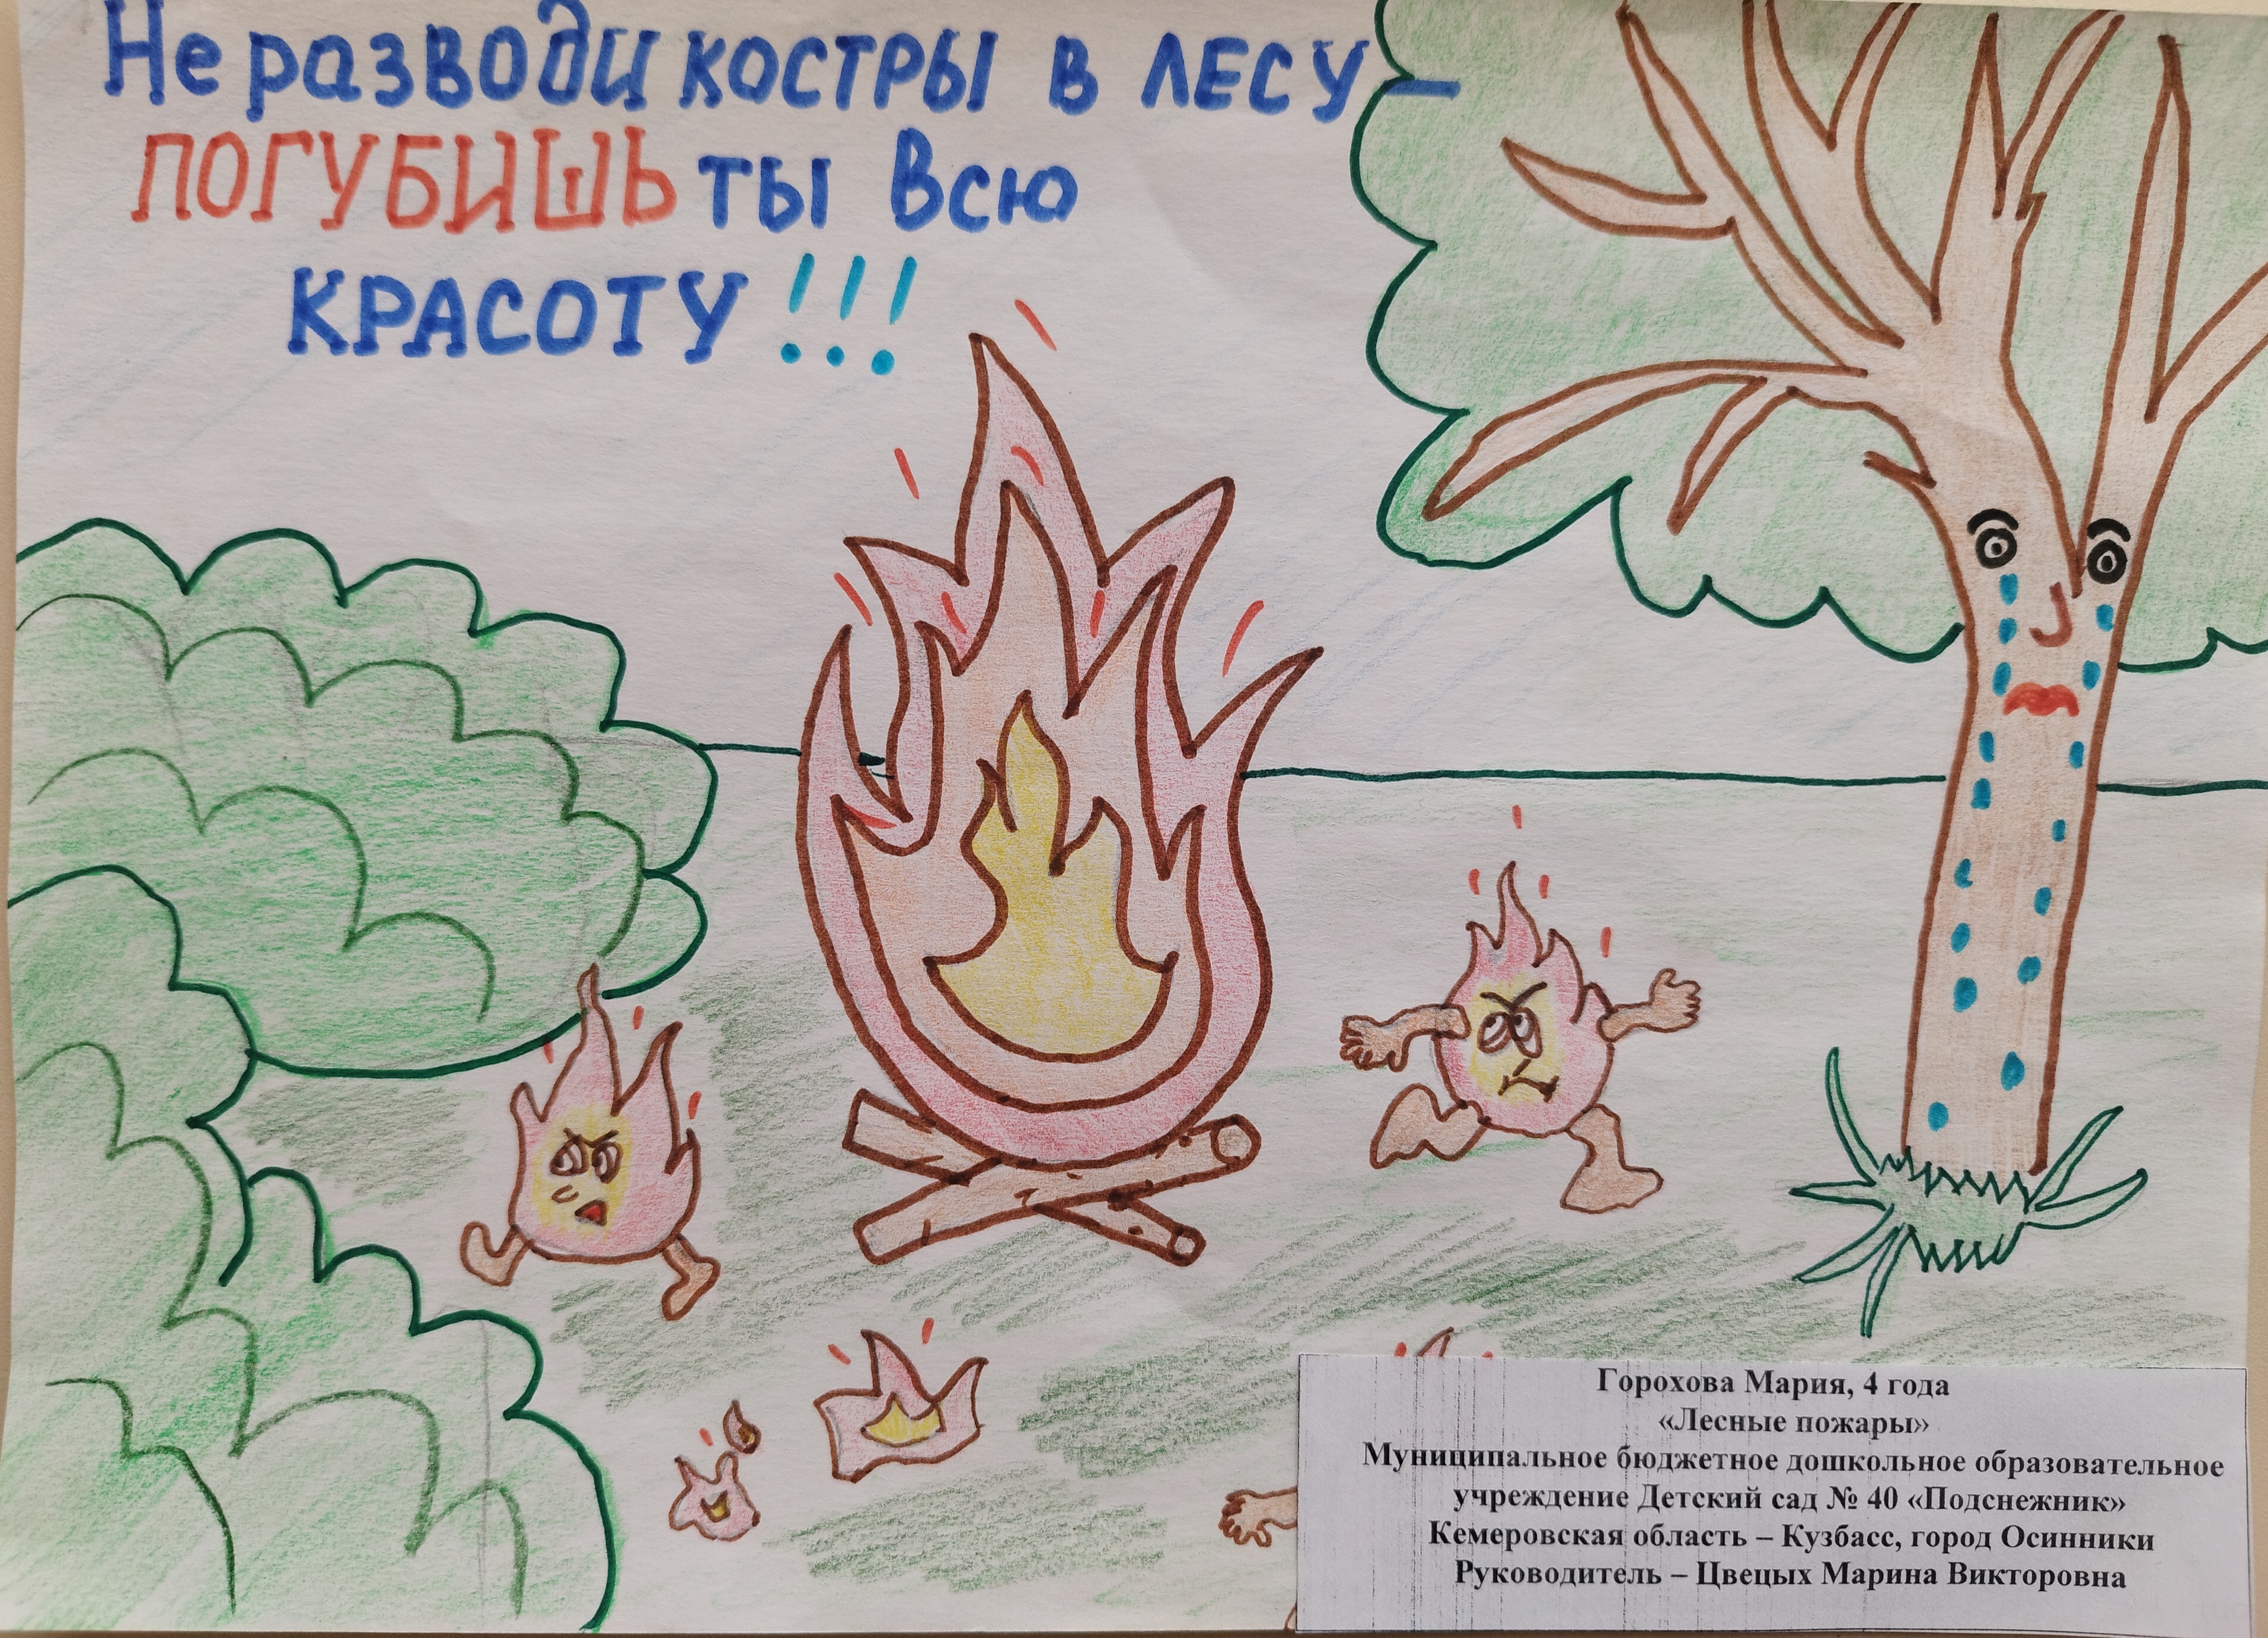 Не разводи костры в лесу –
ПОГУБИШЬ ты всю
КРАСОТУ!!!
Горохова Мария, 4 года
«Лесные пожары»
Муниципальное бюджетное дошкольное образовательное
учреждение Детский сад № 40 «Подснежник»
Кемеровская область – Кузбасс, город Осинники
Руководитель – Цвецых Марина Викторовна